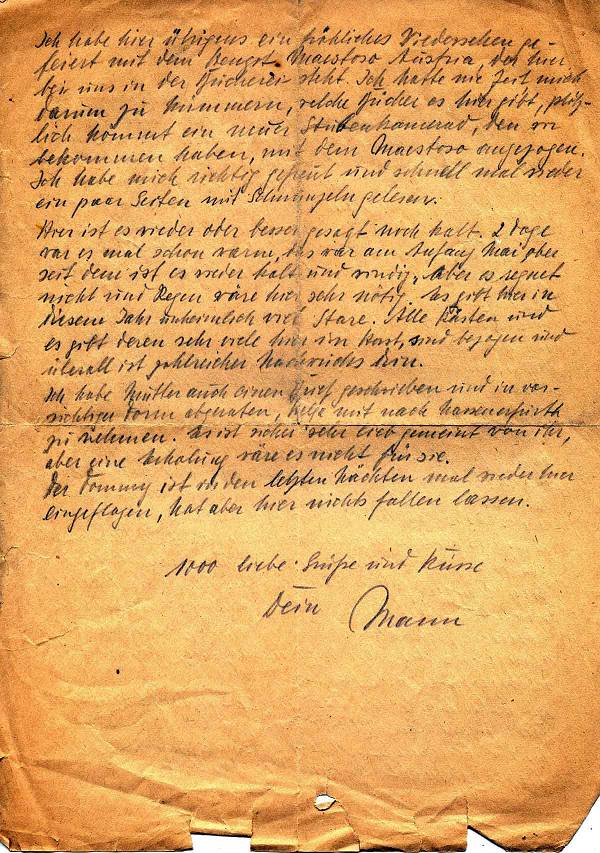 Ich habe hier übrigens ein fröhliches Wiedersehen ge-
feiert mit dem Maestoso Austria, der hier
bei uns in der Bücherei steht. Ich hatte nie Zeit mich
darum zu kümmern, welche Bücher es hier gibt, plötz-
lich kommt ein neuer Stubenkamerad, den wir
bekommen haben, mit dem Maestoso angezogen.
Ich habe mich richtig gefreut und schnell mal wieder
ein paar Seiten mit Schmunzeln gelesen.
Hier ist es wieder oder besser gesagt noch kalt. 2 Tage
war es mal schon warm, das war am Anfang Mai aber
seit dem ist es wieder kalt und windig. Aber es regnet
nicht und Regen wäre hier sehr nötig. Es gibt hier in
diesem Jahr unheimlich viel Stare. Alle Kästen und
es gibt deren sehr viele hier im Forst, sind bezogen und
überall ist zahlreicher Nachwuchs drin.
Ich habe Mutter auch einen Brief geschrieben und in vor-
sichtiger Form abgeraten, mit nach
zu nehmen. Es ist sicher sehr lieb gemeint von ihr,
aber eine Erholung wäre es nicht für sie.
Der Tommy ist in den letzten Nächten mal wieder hier
eingeflogen, hat aber hier nichts fallen lassen.
1000 liebe Grüße und Küsse
Dein Mann